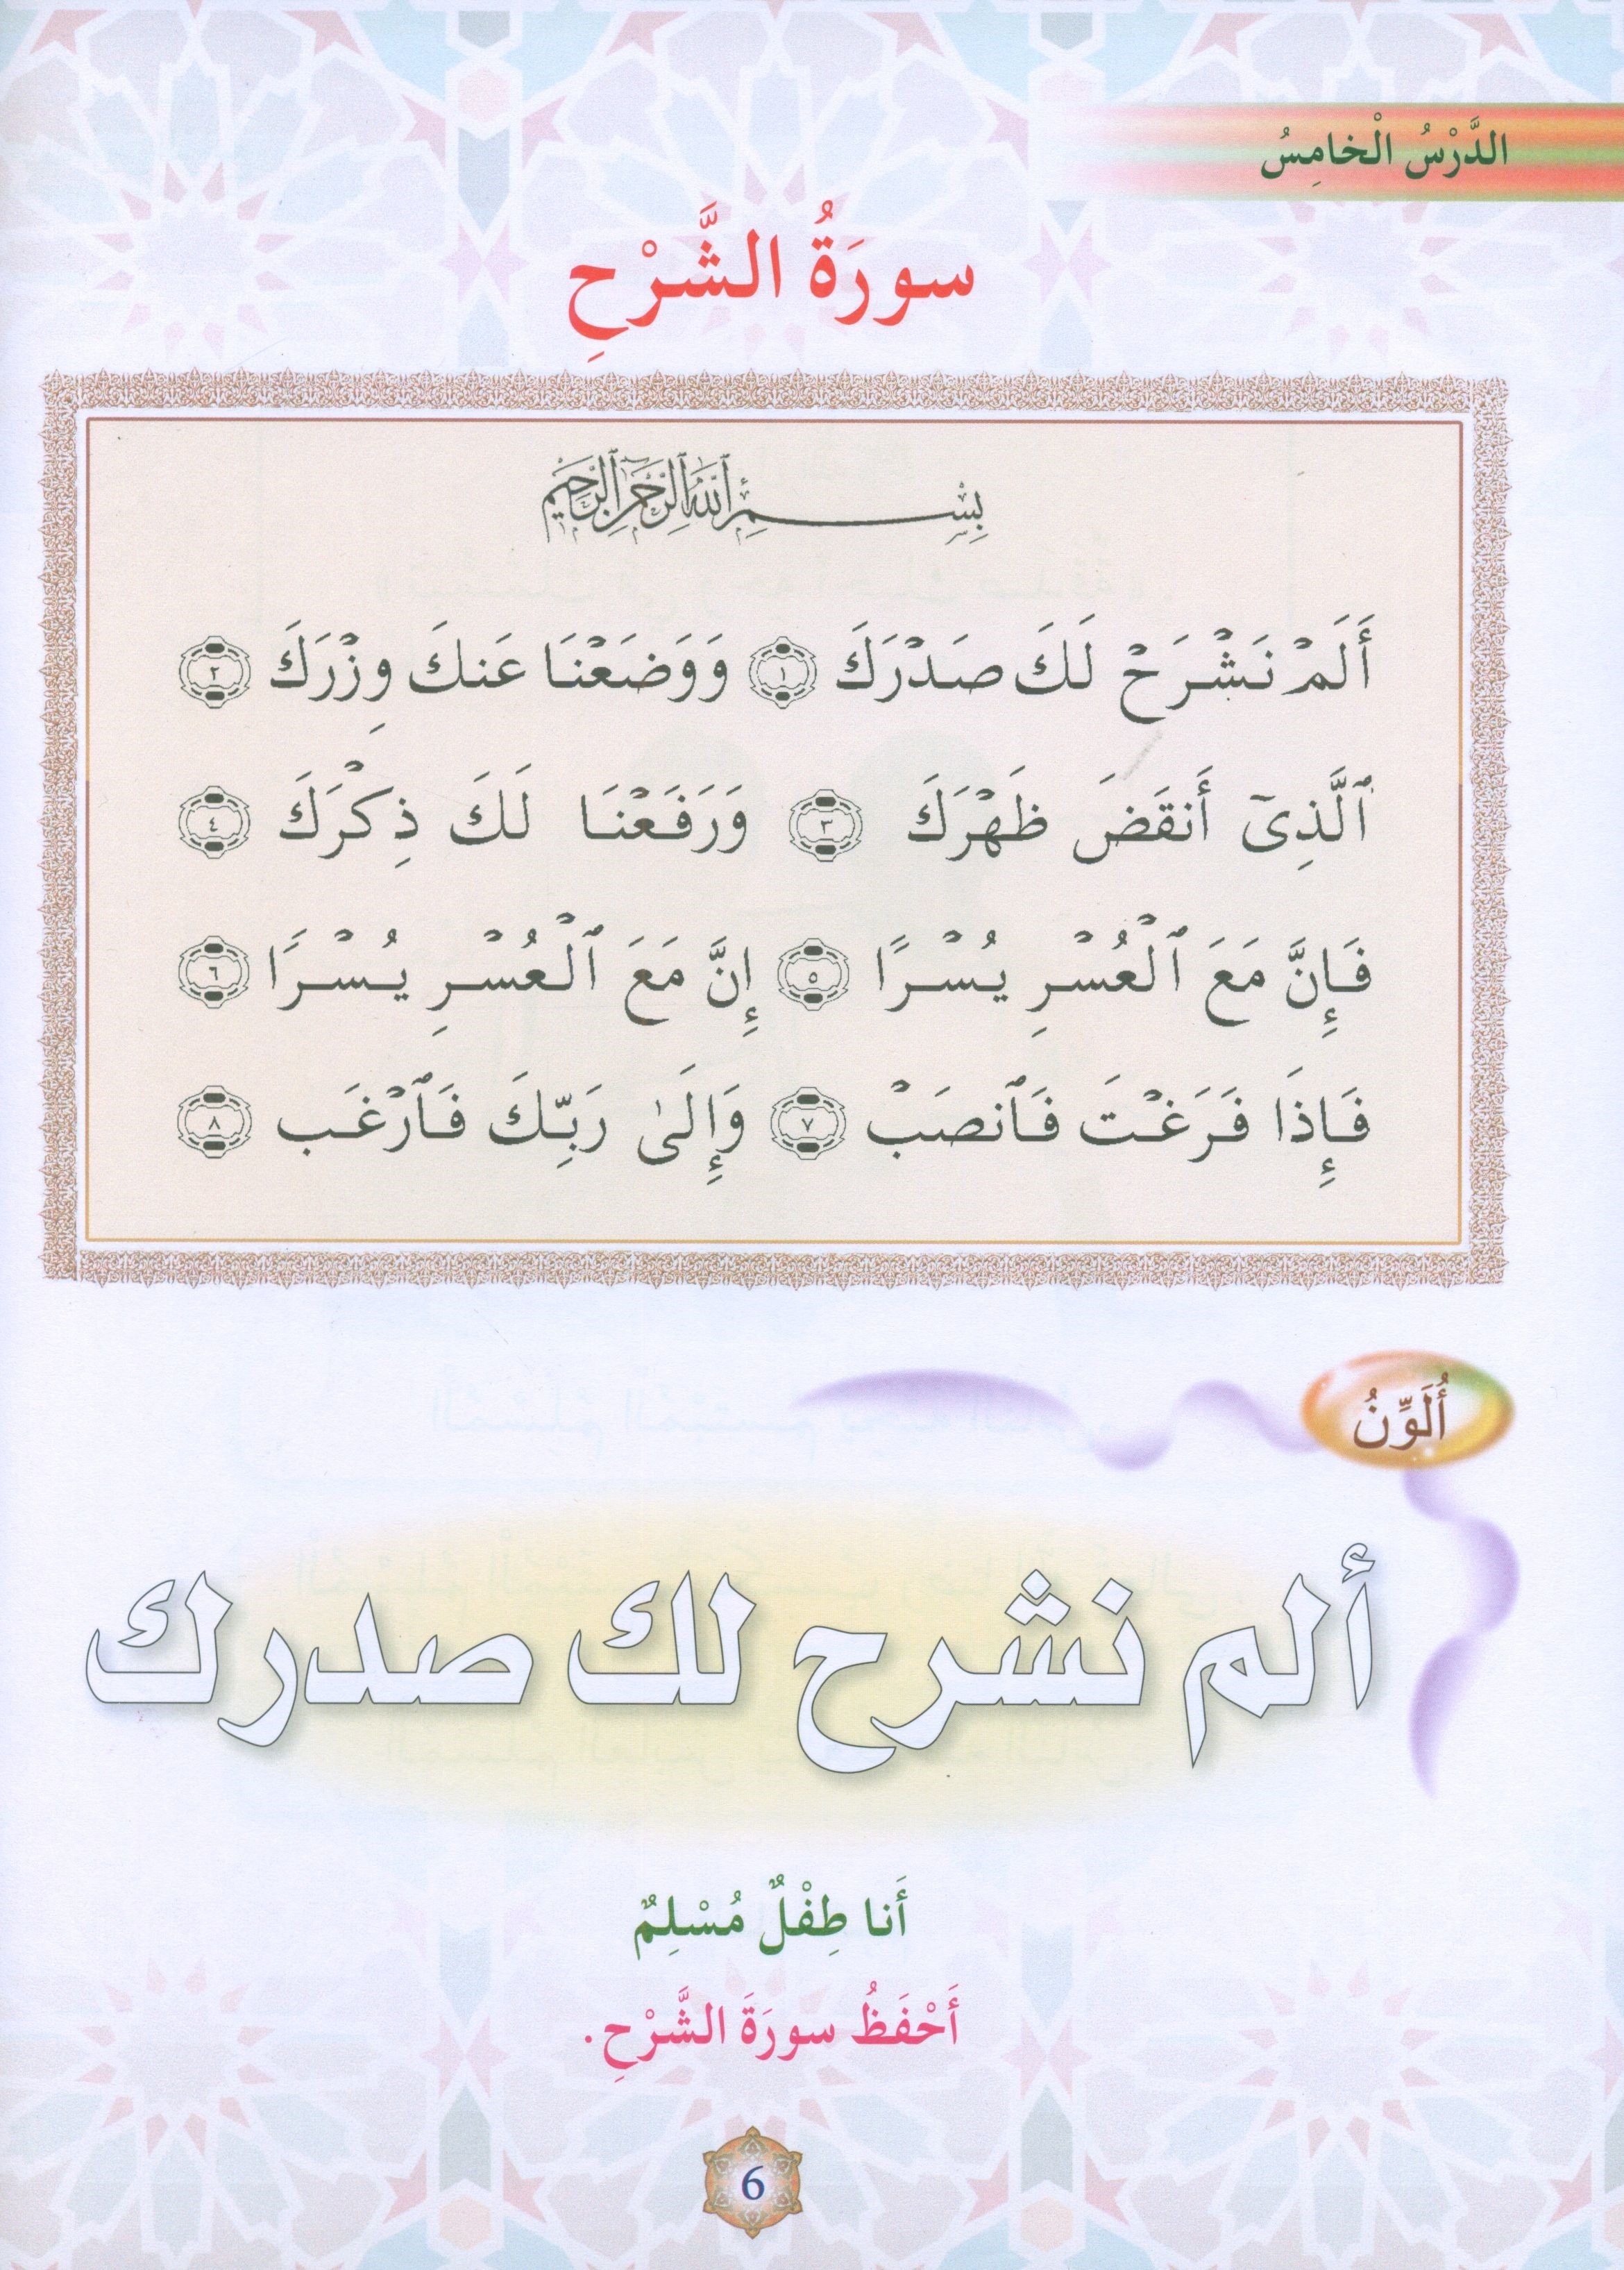 الدَّرْسُ الْخامِسُ
سورَةُ الشَّرْحِ
بِسْمِ ٱللَّهِ ٱلرَّحْمَٰنِ ٱلرَّحِيمِ
أَلَمْ نَشْرَحْ لَكَ صَدْرَكَ ١ وَوَضَعْنَا عَنكَ وِزْرَكَ ٢
ٱلَّذِىٓ أَنقَضَ ظَهْرَكَ ٣ وَرَفَعْنَا لَكَ ذِكْرَكَ ٤
فَإِنَّ مَعَ ٱلْعُسْرِ يُسْرًا ٥ إِنَّ مَعَ ٱلْعُسْرِ يُسْرًا ٦
فَإِذَا فَرَغْتَ فَٱنصَبْ ٧ وَإِلَىٰ رَبِّكَ فَٱرْغَب ٨
أُلَوِّنُ
ألم نشرح لك صدرك
أَنا طِفْلٌ مُسْلِمٌ
أَحْفَظُ سورَةَ الشَّرْحِ.
6